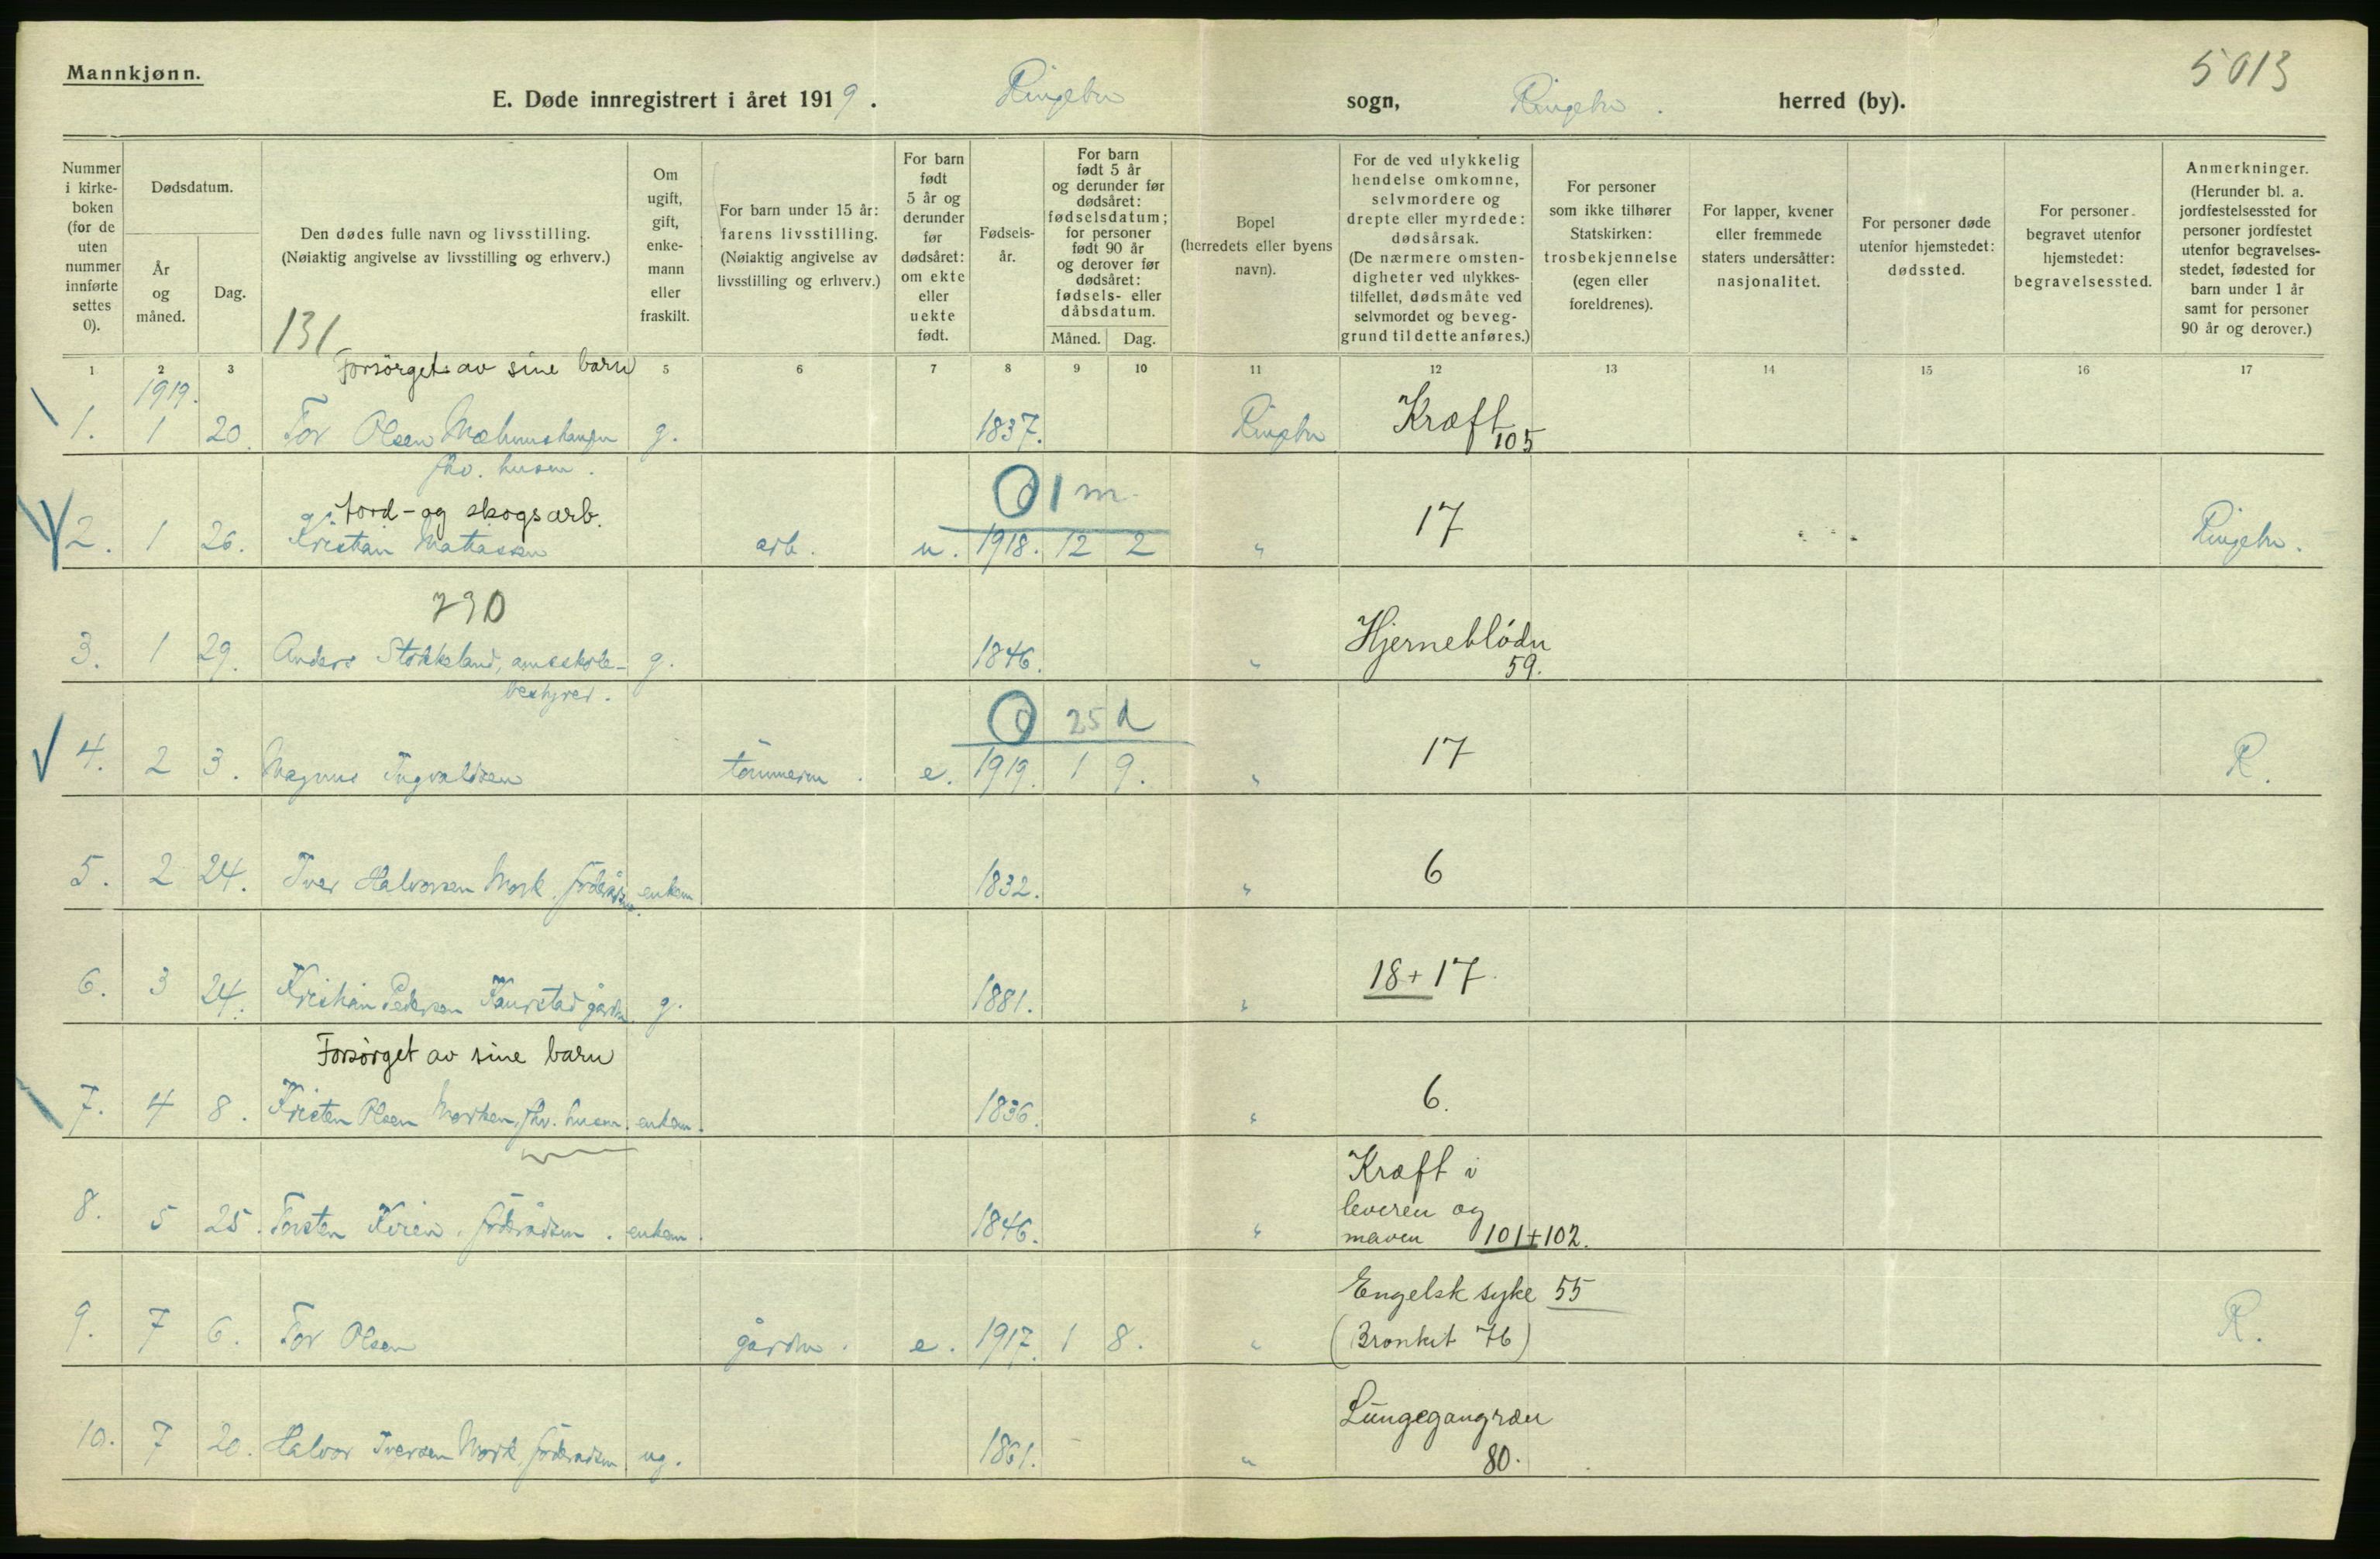 Mannkjønn.
5013
E. Døde innregistrert i året 1919. Ringebu sogn, Ringebu. herred (by).
Nummer i kirke- boken (for de uten nummer innførte settes 0).
Dødsdatum.
År og måned.
Dag.
Den dødes fulle navn og livsstilling.
(Nøiaktig angivelse av livsstilling og erhverv.)
131
Om ugift, gift, enke- mann eller fraskilt.
For barn under 15 år: farens livsstilling. (Nøiaktig angivelse av livsstilling og erhverv.)
For barn født 5 år og derunder før dødsåret: om ekte eller uekte født.
Fødsels- år.
For barn født 5 år og derunder før dødsåret: fødselsdatum; for personer født 90 år og derover før dødsåret: fødsels- eller dåbsdatum.
Måned. Dag.
Bopel (herredets eller byens navn).
For de ved ulykkelig hendelse omkomne, selvmordere og drepte eller myrdede: dødsårsak. (De nærmere omsten- digheter ved ulykkes- tilfellet, dødsmåte ved selvmordet og beveg- grund til dette anføres.)
For personer som ikke tilhører Statskirken: trosbekjennelse (egen eller foreldrenes).
For lapper, kvener eller fremmede staters undersåtter: nasjonalitet.
For personer døde utenfor hjemstedet: dødssted.
For personer begravet utenfor hjemstedet: begravelsessted.
Anmerkninger. (Herunder bl. a. jordfestelsessted for personer jordfestet utenfor begravelses- stedet, fødested for barn under 1 år samt for personer 90 år og derover.)
1 2 3 5 6 7 8 9 10 11 12 13 14 15 16 17
Forsørget av sine barn
1919.
1. 1 20. Tor Olsen g. 1837. Ringebu Kræft 105
fhv. husm.
O 1 m.
Jord- og skogsarb.
2. 1 26. Kristian Mattiasen arb. u. 1918. 12 2 " 17 Ringebu.
790
3. 1 29. Anders Stokkeland, amsskole- g. 1846. " Hjerneblødn 59.
bestyrer.
O 25 d
4. 2 3. Magnus Ingvaldsen tömmerm. e. 1919. 1 9. " 17 R.
5. 2 24. Iver Halvorsen Mork, föderådsm. enkem 1832. " 6
6. 3 24. Kristian Pedersen Kaurstad gårdbr. g. 1881. " 18 + 17.
Forsørget av sine barn
7. 4 8. Kristen Olsen Morken, fhv. husm. enkem. 1836. " 6.
8. 5 25. Torsten Kvien, föderådsm. enkem. 1846. " Kræft i
leveren og
maven 101+102.
9. 7 6. Tor Olsen gårdbr. e. 1917. 1 8. " Engelsk syke 55 R.
(Bronkit 76)
10. 7 20. Halvor Iversen Mork, föderådsm ug. 1861. " Lungegangræn
80.